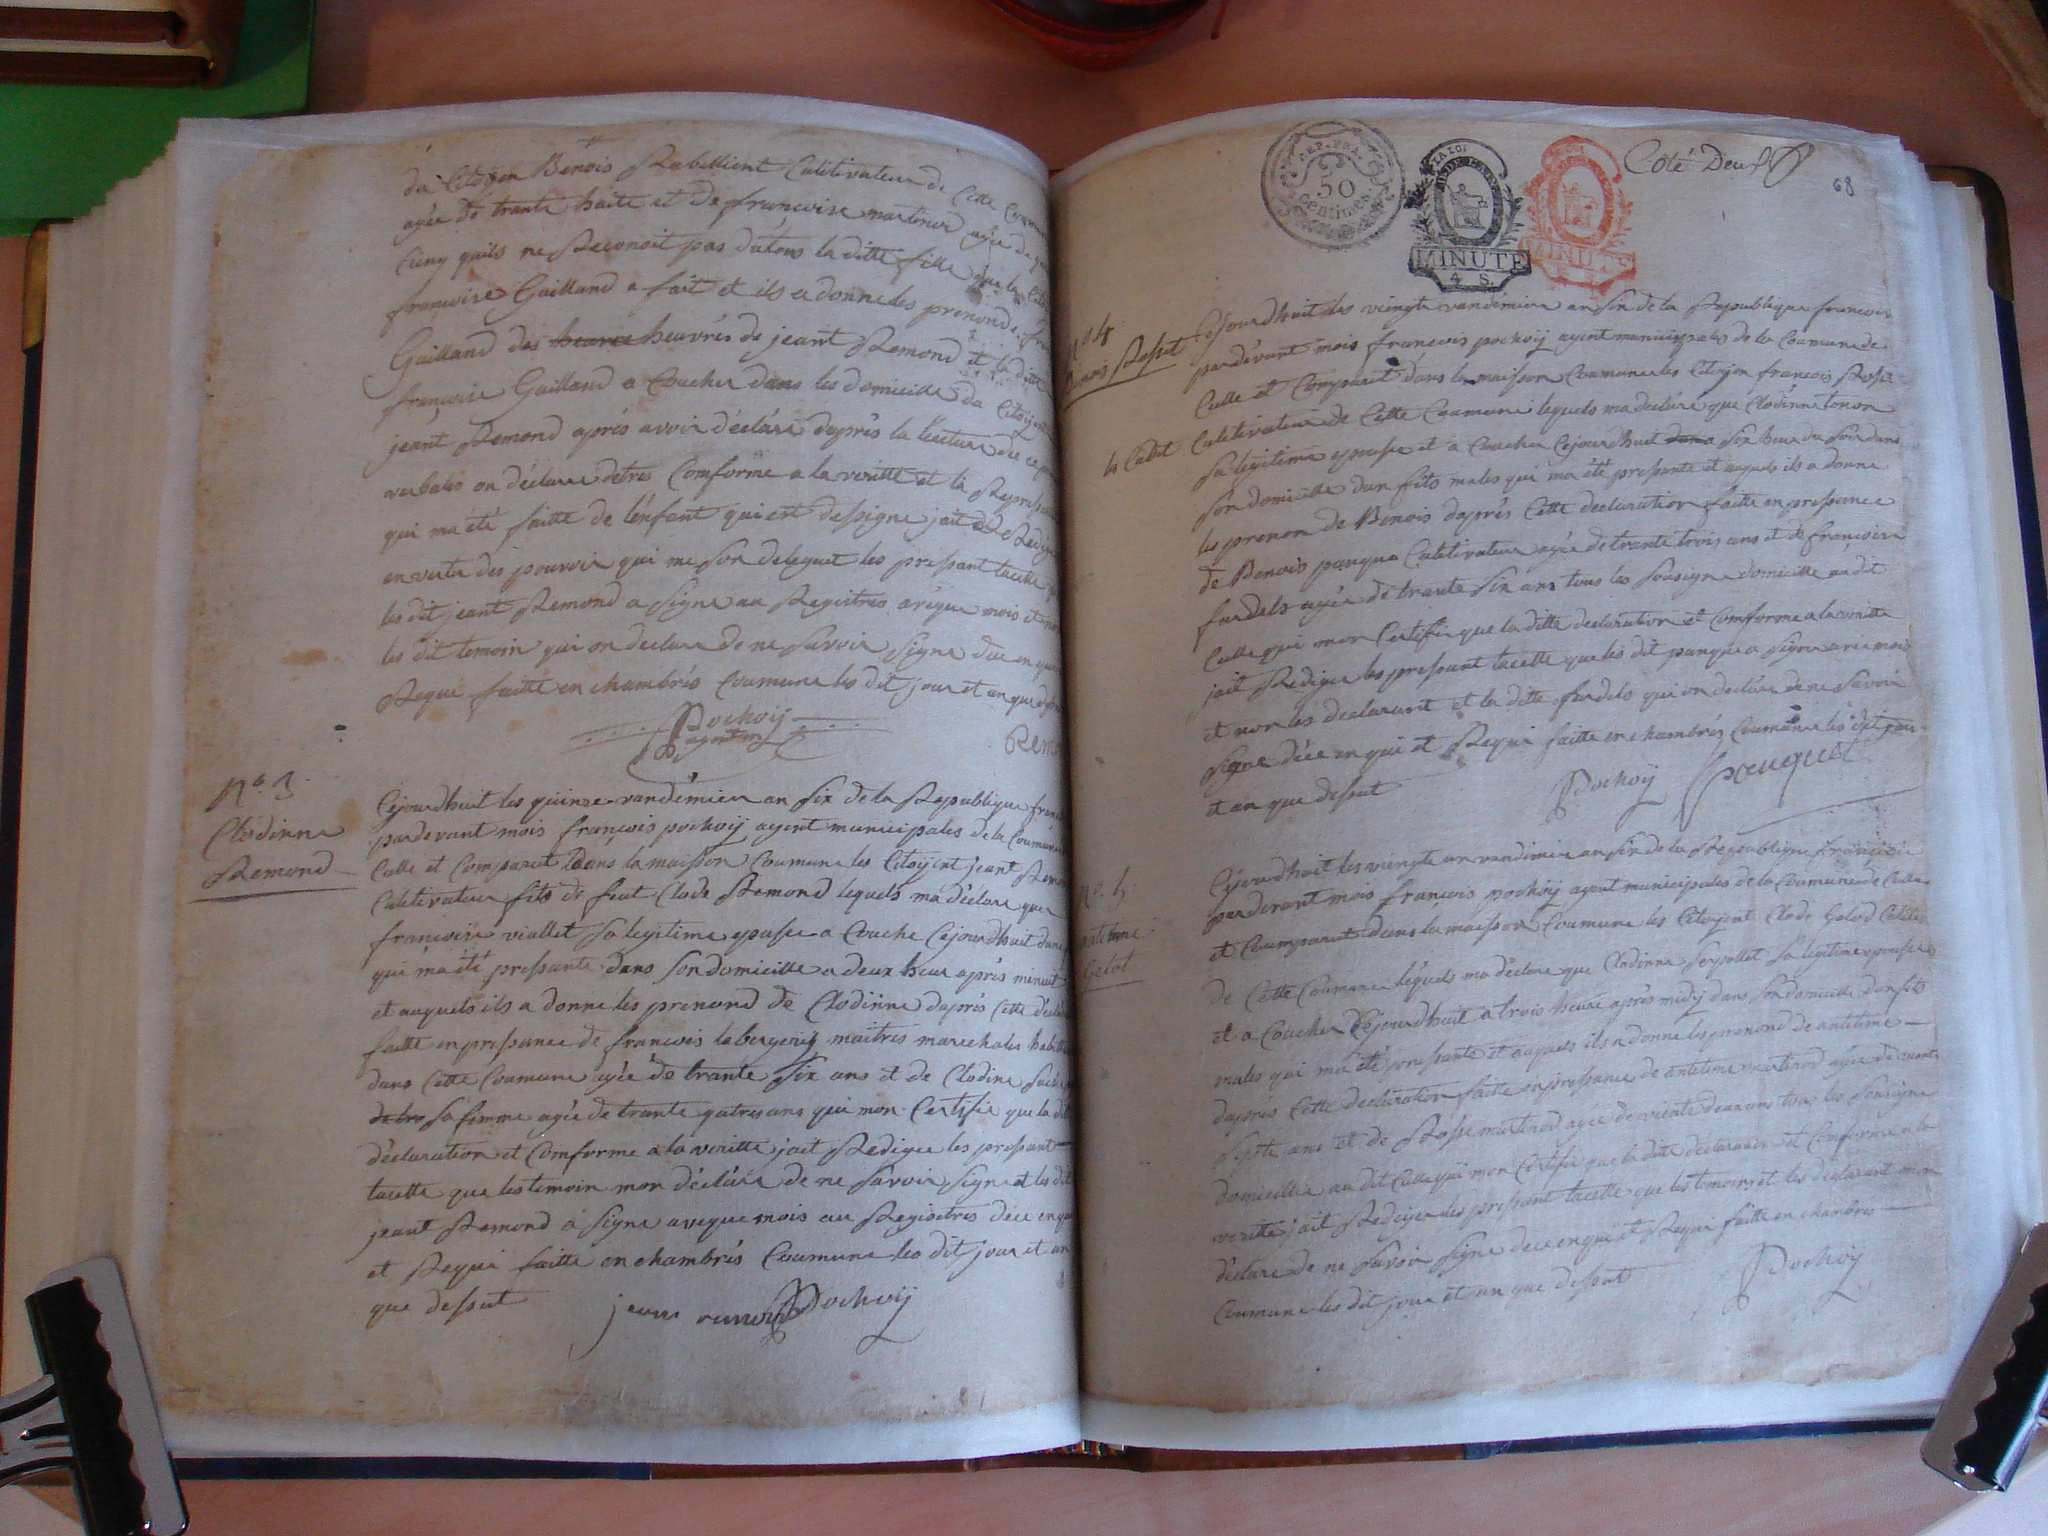 du Citoyen Benois Rabillient Cultivateur de Cette
agée de trante huite et de francoise martinod agée de
Cinq quils ne Reconoit pas dutous la ditte fille que la
francoise Gailland a fait et ils a donne les prenond de
Gailland des heure heuvrés de jeant Remond et la ditte
francoise Gailland a Coucher dans les domicille du Citoyen
jeant Remond aprés avoir déclare daprés la lecture du
verbales on déclare detres Comforme a la veritte et la
qui ma été faitte de lenfant qui est dessigne jait
en vertu des pouvoir qui me son delequet les pressant tacette
les dit jeant Remond a signe au Registres avéque mois et non
les dit temoin qui on declare de ne savoir signe
Reque faitte en chambrés Coumune les dit jour et an que
Pochoÿ
agent
Remo
N.o 3
Clodinne
Remond
Céjourdhuit les quinze vandémiere an six de la Republique
pardevant mois françois pochoÿ agent municipales de la Coumune
Culle et Comparut Dans la maisson Coumune les Citoyent jeant
Cultivateur fils de feut Clode Remond lequels ma déclare que
francoisse viallet sa legitime epousse a Couche Cejourdhuit
qui ma été pressante dans son domicille a deux heur aprés minuit
et auquels ils a donne les prenond de Clodinne daprés Cette
faitte en pressance de francois labergerÿ maitres marechales
dans Cette Coumune agée de trante six ans et de Clodine
sa femme agée de trante quatres ans qui mon Certifie que la
déclaration et Comforme a la veritte jait Rediger les pressant
tacette que les temoin mon déclare de ne savoir signe et les dit
jeant Remond a signe aveque mois au Registres
et Requi faitte en chambrés Coumune les dit jour et an
que dessut
Pochoÿ
REP. FRA.
50
centimes
LA LOI
MINUTE
4 S
MINUTE
Coté Deux
68
N.o 4
Benois Rosset
le Cadet
Cejourdhuit les veingte vandemiere an six de la Republique francoise
pardévant mois francois pochoÿ agent municipales de la Coumune de
Culle et Comparut dans la maisson Coumune les Citoyen francois Rosset
Cultivateur de Cette Coumune lequels ma declare que Clodinne
sa legitime epousse et a Coucher Cejourdhuit dans six heur du soir dans
son domicille dun fils males qui ma été pressante et auquels ils a donne
les prenom de Benois daprés Cette declaration faitte en pressance
de Benois panque Cultivateur agée de trante trois ans et de francoise
fardels agée de trante six ans tous les sousigne domicille audit
Culle qui mon Certifie que la ditte declaration et Comforme a la veritte
jait Rediger les pressant tacette que les dit panque a signe avec mois
et non les declarant et la ditte fardels qui on declare de ne savoir
signe en qui et Requi faitte en chambrés Coumune les dit jour
et an que dessut
Pochoÿ
N.o 5
antelme
Gelod
Cejourdhuit les viengte un vandimiere an six de la Republique francoise
pardevant mois francois pochoÿ agent municipales de la Coumune de Culle
et Coumparut dans la maisson Coumune les Citoyent Clode Gelod
de Cette Coumune lequels ma déclare que Clodinne serpollet sa legitime epousse
et a Coucher Céjourdhuit a trois heure aprés midÿ dans son domicille dun fils
males qui ma été pressante et auquels ils a donne les prenond de antelme
daprés Cette declaration faitte en pressance de antelme martinod agée de
septe ans et de Rosse martinod agée de viente deux ans tous les sousigne
domicillie au dit Culle qui mon Certifie que la dite declaration et Comforme a la
veritte jait Rediger les pressant tacette que les temoins et les declarant mon
déclare de ne savoir signe en qui et Requi faitte en chambres
Coumune les dit jour et an que dessut
Pochoÿ